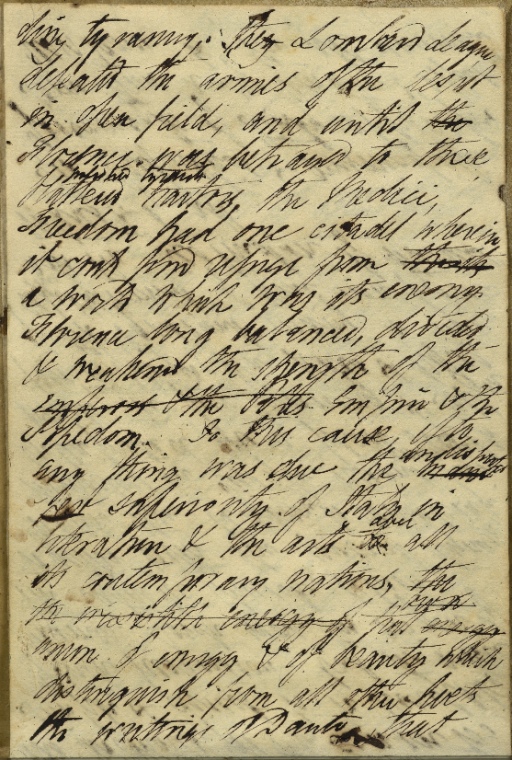 tyranny. The Lombard League
defeated the armies of the despot
in open field, and until the
Florence was betrayed to those
polished tyrants
traitors, the Medici,
Freedom had one citadel wherein
it could find refuge from
a world which was its enemy.
Florence long balanced, divided
& weakened the strength of the
emperors & the Popes Empire & the
Popedom. To this cause, if to
any thing, was due the undisputed
superiority of Italy in
literature & the arts over all
its contemporary nations, that
the irresistible energy of that
union of energy & of beauty which
distinguish from all other poets
the writings of Dante, that